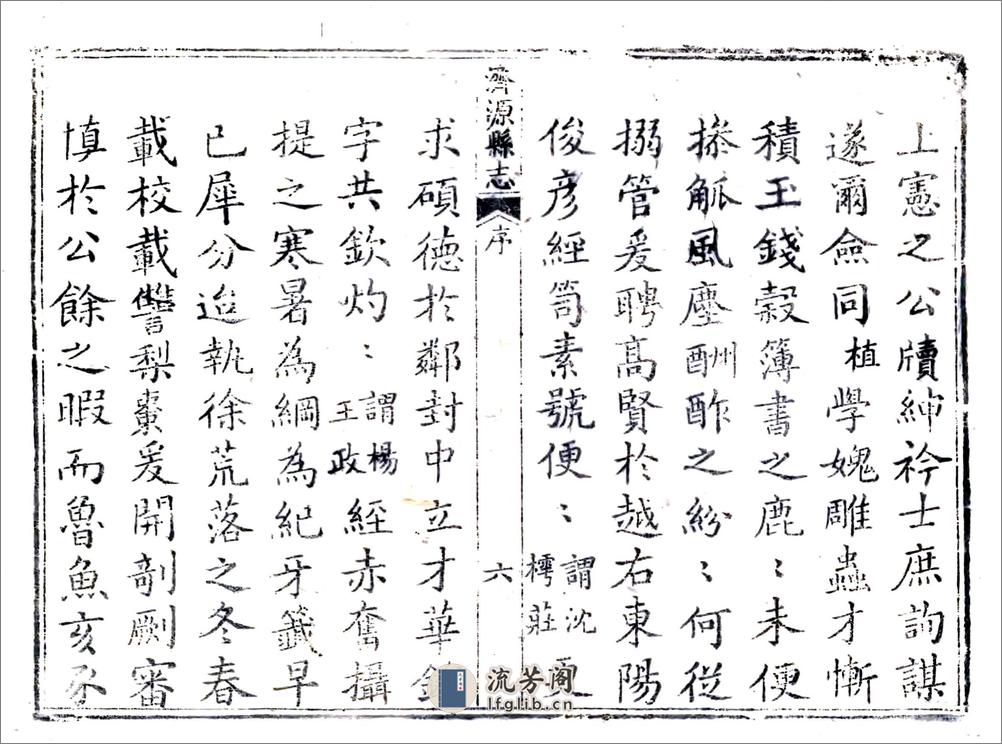 上憲之公牘紳衿士庶詢謀
遂爾僉同植學媿雕蟲才慚
積玉錢穀簿書之鹿〻未便
捺觚風塵酬酢之紛〻何從
搦管爰聘高賢於越右東陽
俊彥經笥素號便〻謂沈樗莊更
濟源縣志 序 六
求碩德於鄰封中立才華錦
字共欽灼〻謂楊王政經赤奮攝
提之寒暑為綱為紀牙籤早
已犀分迨執徐荒落之冬春
載校載讐梨棗爰開剞劂審
慎於公餘之暇而魯魚亥豕
流芳阁
lfglib.cn